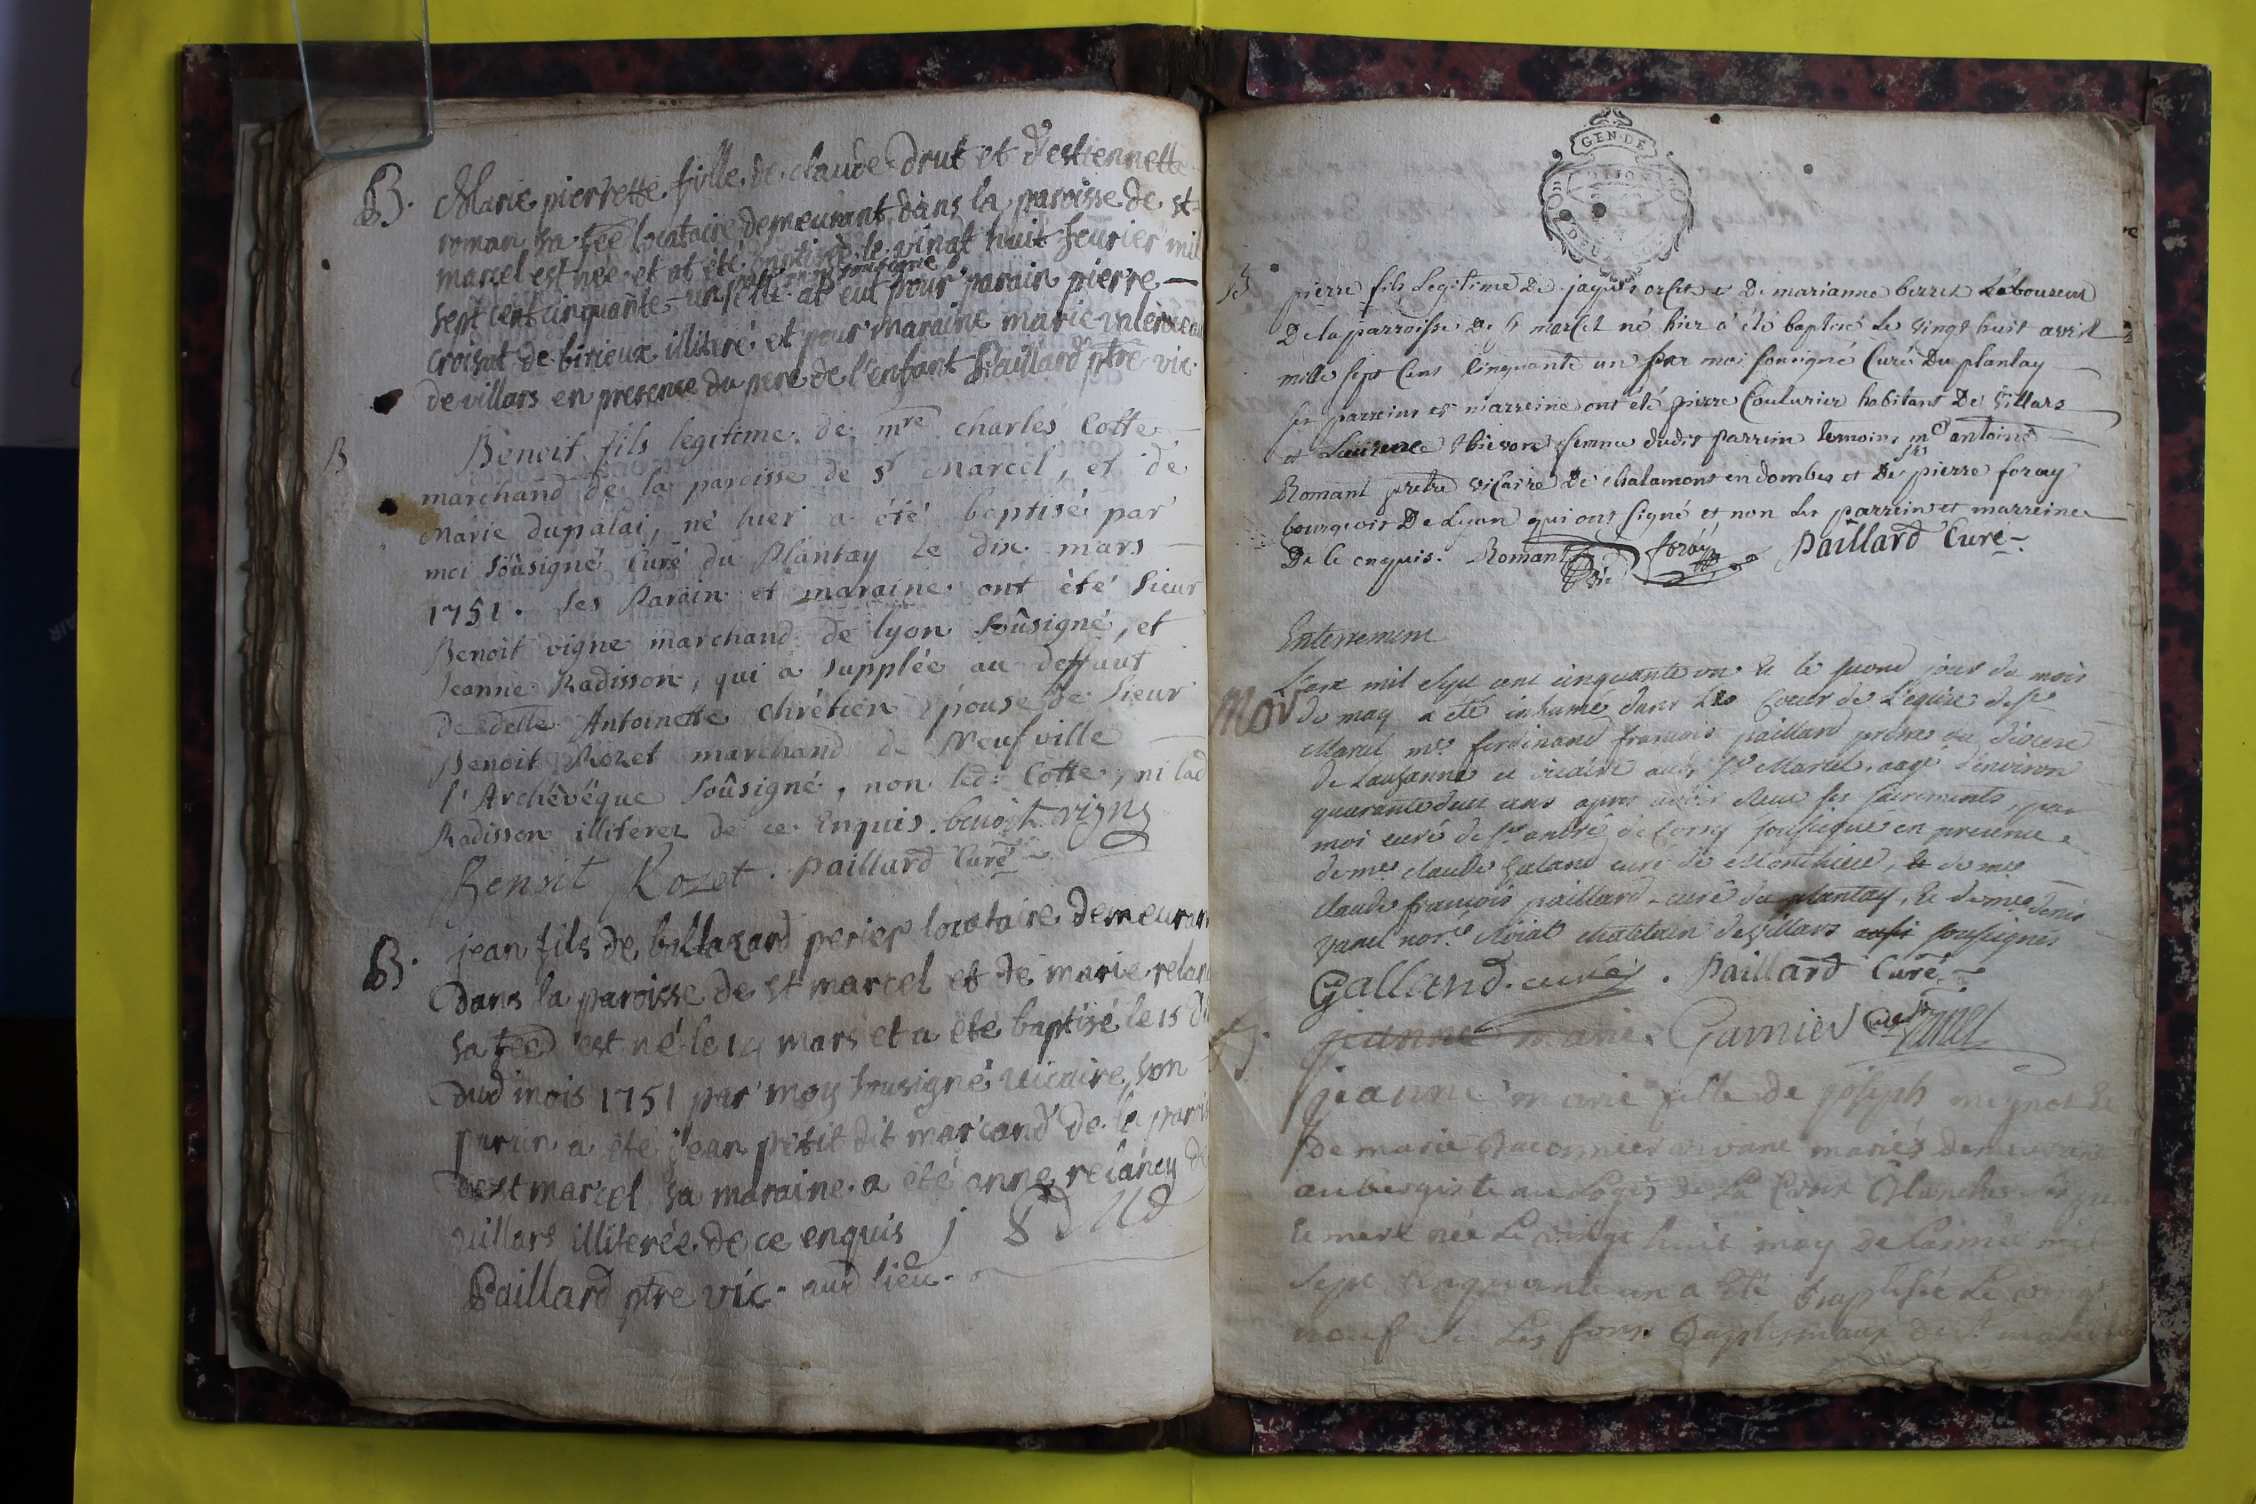 B. Marie pierrette fille de claude drut et d'estiennette
roman sa fẽe locataire demeurant dans la paroisse de st
marcel est née et at été baptisée le vingt huit feurier mil
par moy sousigné
sept cent cinquante-un elle at eut pour parain pierre
croisat de birieux illiteré et pour maraine marie
de villars en presence du pere de l'enfant Paillard ptre vic.
B Benoit fils legitime de mre charles Cotte
marchand de la paroisse de st Marcel, et de
Marie dupalai, né hier a été baptisé par
moi soûsigné Curé du Plantay le dix mars
1751. ses Parain et maraine ont été sieur
Benoit vigne marchand de lyon soûsigné, et
Jeanne Radisson, qui a supplée au deffaut
de delle Antoinette chrétien épouse de sieur
Benoit Rozet marchand de Neufville
l'Archêvêque soûsigné, non led: Cotte, ni lad
Radisson illiterez de ce Enquis. benoit vigne
Benoit Rozet. paillard Curé
B. jean fils de perier locataire demeurant
dans la paroisse de st marcel et de marie
sa fẽe est né le 14 mars et a été baptisé le 15 du
dud mois 1751 par moy sousigné vicaire, son
parain a été jean petit dit marcand de la paroisse
de st marcel sa maraine a été anne relancy de
villars illiterée de ce enquis
Paillard ptre vic. aud lieu.
GEN. DE DIJON
B pierre fils Legitime De jaques et De marianne Laboureur
De la parroisse de st marcel né hier a été baptisé Le vingt huit avril
mille sept Cens Cinquante un par moi sousigné Curé Du plantay
ses parrein et marreine ont été pierre Couturier habitant De villars
et Laurence femme dudit parrein temoins me antoine
Romant pretre vicaire De chalamont en dombes et De sr pierre foray
bourgeois De Lyon qui ont signé et non Les parrein et marreine
De ce enquis. Romant foray Paillard Curé
Enterrement
Mor L'an mil sept cent cinquante un et le second jour du mois
de may a été inhumé dans Le Cœur de L'eglise de st
Marcel mre ferdinand francois paillard pretre du diocese
de Lauzanne et vicaire aud. st Marcel, agé d'environ
quarante deux ans apres avoir Receu ses sacrements, par
moi curé de st andré de Corcy soussigné en presence
de mre claude Galand curé de Monthieu, et de mre
claude françois paillard curé du plantay, et de mre denis
not. Roial chatelain de villars soussignés
Galland curé. Paillard Curé
jeanne marie. Garnier Curé
jeanne marie fille de joseph mignot et
de marie mariés demeurant
aubergiste au Logis de La Croix Blanche
née Le vingt huit may de L'année mil
sept Cinquante un a été baptisée Le vingt
neuf Les fons Baptismaux de st marcel